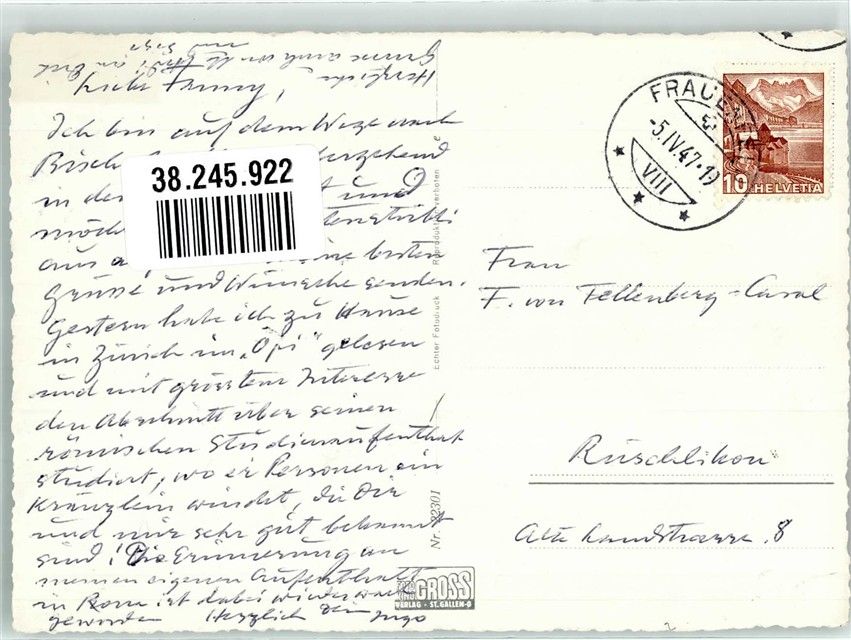 Liebe Fanny,
Ich bin auf dem Wege nach
Bisch
in der und
möch
aus besten
Grüsse und Wünsche senden.
Gestern habe ich zu Hause
in Zürich im „Öpi“ gelesen
und mit grösstem Interesse
den Abschnitt über seinen
römischen Studienaufenthalt
studiert, wo er Personen ein
Kränzlein windet, die Dir
und mir sehr gut bekannt
sind! Die Erinnerung an
meinen eigenen Aufenthalt
in Rom ist dabei wieder wach
geworden Herzlich Dein Ingo
Herzliche
Grüsse auch an
38.245.922
Echter Fotodruck Reproduktion verboten
Nr. 92301
GROSS
VERLAG · ST. GALLEN-O
FRAUEN
-5.IV.47-19
VIII
10 HELVETIA
Frau
F. von Fellenberg-Casal
Rüschlikon
Alte Landstrasse 8